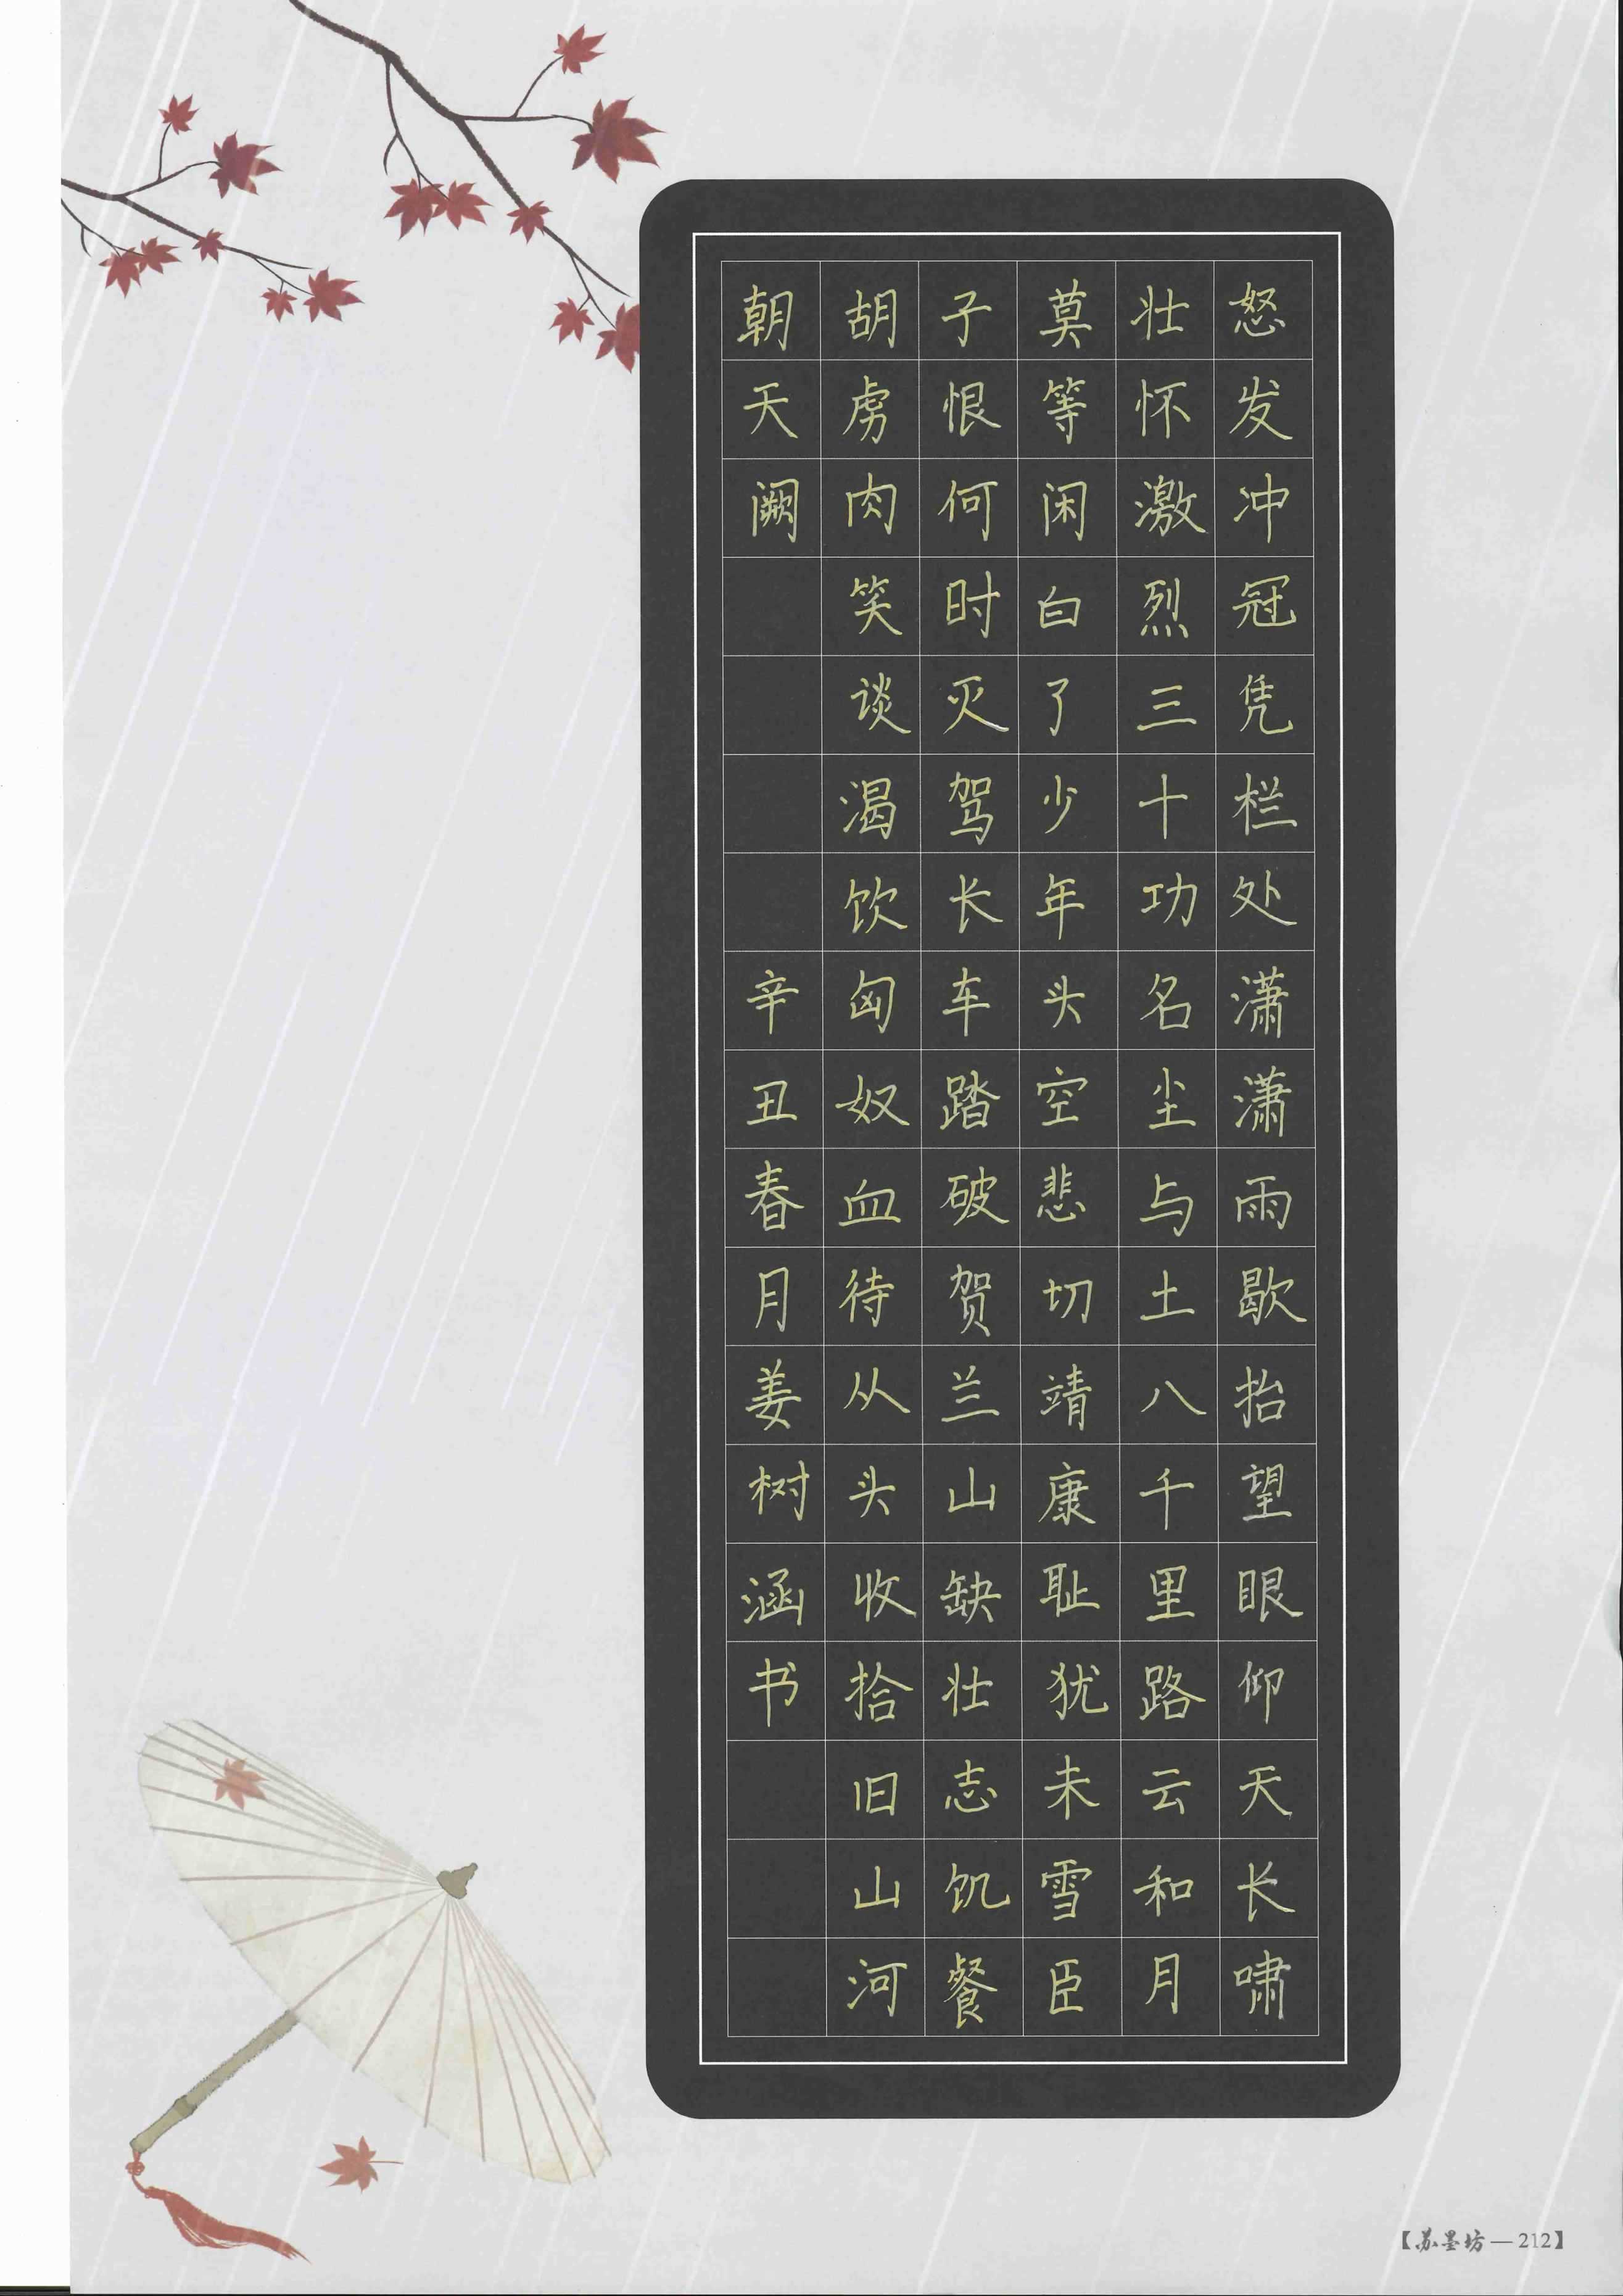 怒发冲冠凭栏处潇潇雨歇抬望眼仰天长啸
壮怀激烈三十功名尘与土八千里路云和月
莫等闲白了少年头空悲切靖康耻犹未雪臣
子恨何时灭驾长车踏破贺兰山缺壮志饥餐
胡虏肉笑谈渴饮匈奴血待从头收拾旧山河
朝天阙
辛丑春月姜树涵书
【苏墨坊—212】